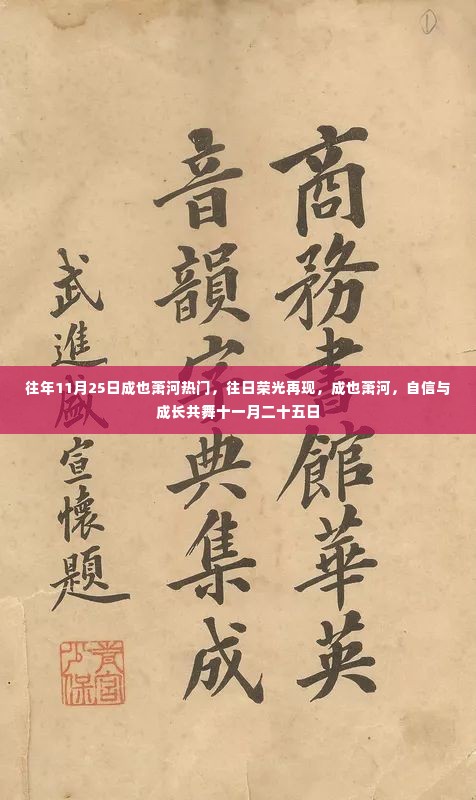 ①
商務書館華英
音韻字典集成
武進盛宣懷題
青宮
少保
往年11月25日成也萧河热门，往日荣光再现，成也萧河，自信与
成长共舞十一月二十五日